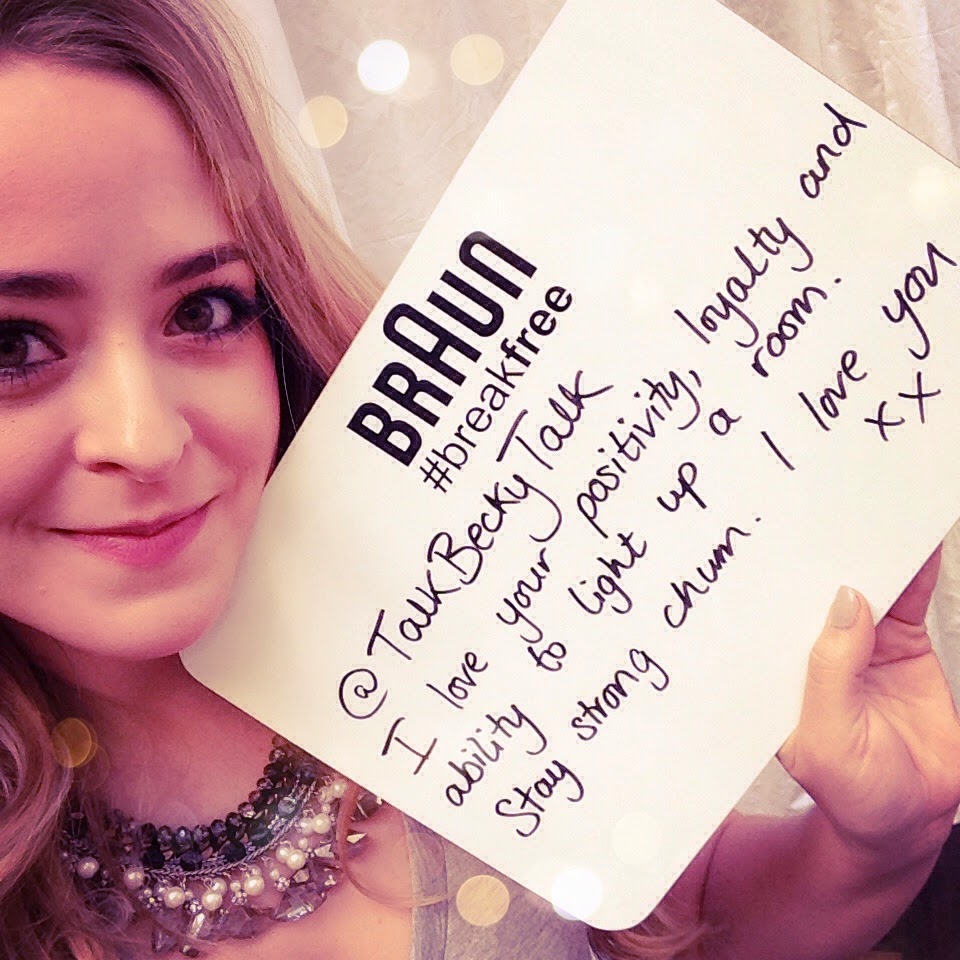 BRAUN
#breakfree
@TalkBeckyTalk
I love your positivity, loyalty and
ability to light up a room.
Stay strong chum. I love you
xx